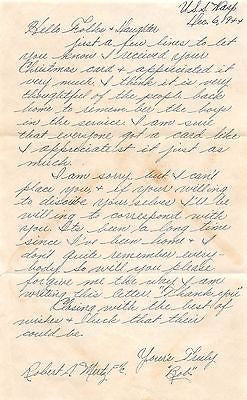 U.S.S. Wasp
Dec. 6, 1944
Hello Folks & Daughter
Just a few lines to let
you know I recived your
Christmas card & appreiated it
very much. I think it is very
thoughtful of the people back
home to remember the boys
in the service. I am sure
that everyone got a card like
I appreciates it just as
much.
I am sorry, but I can't
place you, & if your willing
to disclose your selves I'll be
willing to correspond with
you. Its been a long time
since I've been home & I
don't quite remember every-
body. So will you please
forgive me the way I am
writing this letter. "Thank you"
Closing with the best of
wishes & luck that their
could be.
Yours Truly
"Bob"
Robert S.